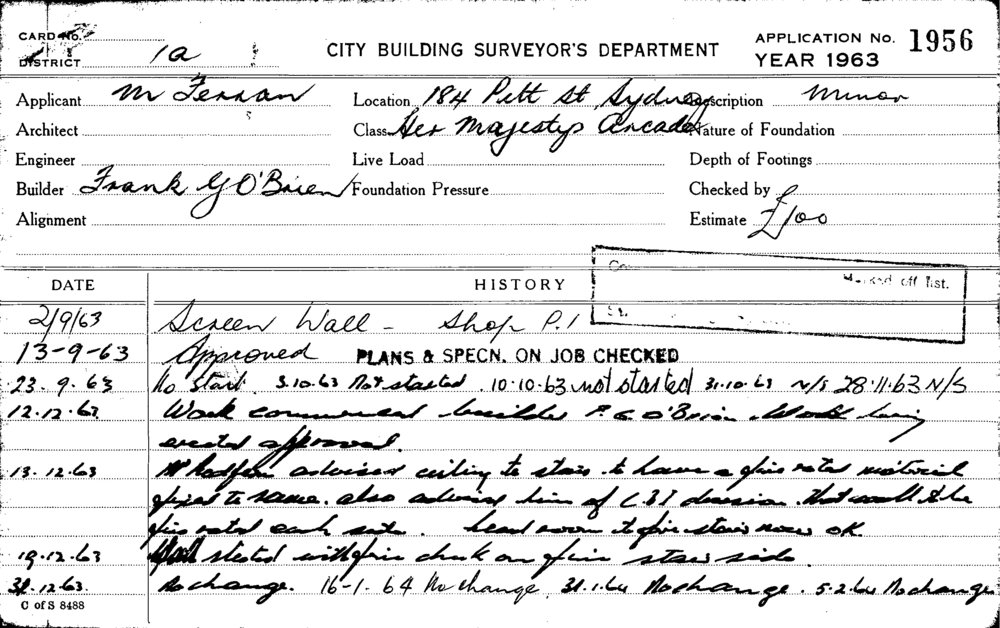 CARD No.
DISTRICT 1a
CITY BUILDING SURVEYOR'S DEPARTMENT
APPLICATION No. 1956
YEAR 1963
Applicant M Ferran Location 184 Pitt St, Sydney Description Minor
Architect Class Her Majestys Arcade Nature of Foundation
Engineer Live Load Depth of Footings
Builder Frank G O'Brien Foundation Pressure Checked by
Alignment Estimate £100
DATE HISTORY
Marked off list.
2/9/63 Screen Wall - Shop P.1
13-9-63 Approved PLANS & SPECN. ON JOB CHECKED
23.9.63 No start 3.10.63 Not started 10.10.63 not started 31.10.63 N/S 28.11.63 N/S
12.12.63 Work commenced builder F. G O'Brien. Wall being
erected approval.
13.12.63 Mr advised ceiling to stairs to have a fire rated material
fixed to same. also advised him of C.B.S decision that wall to be
fire rated each side. head room to fire stairs now OK.
19.12.63 Wall sheeted with fire on fire stair side.
31.12.63. No change. 16-1.64 No change. 31.1.64 No change. 5.2.64 No change
C of S 8488